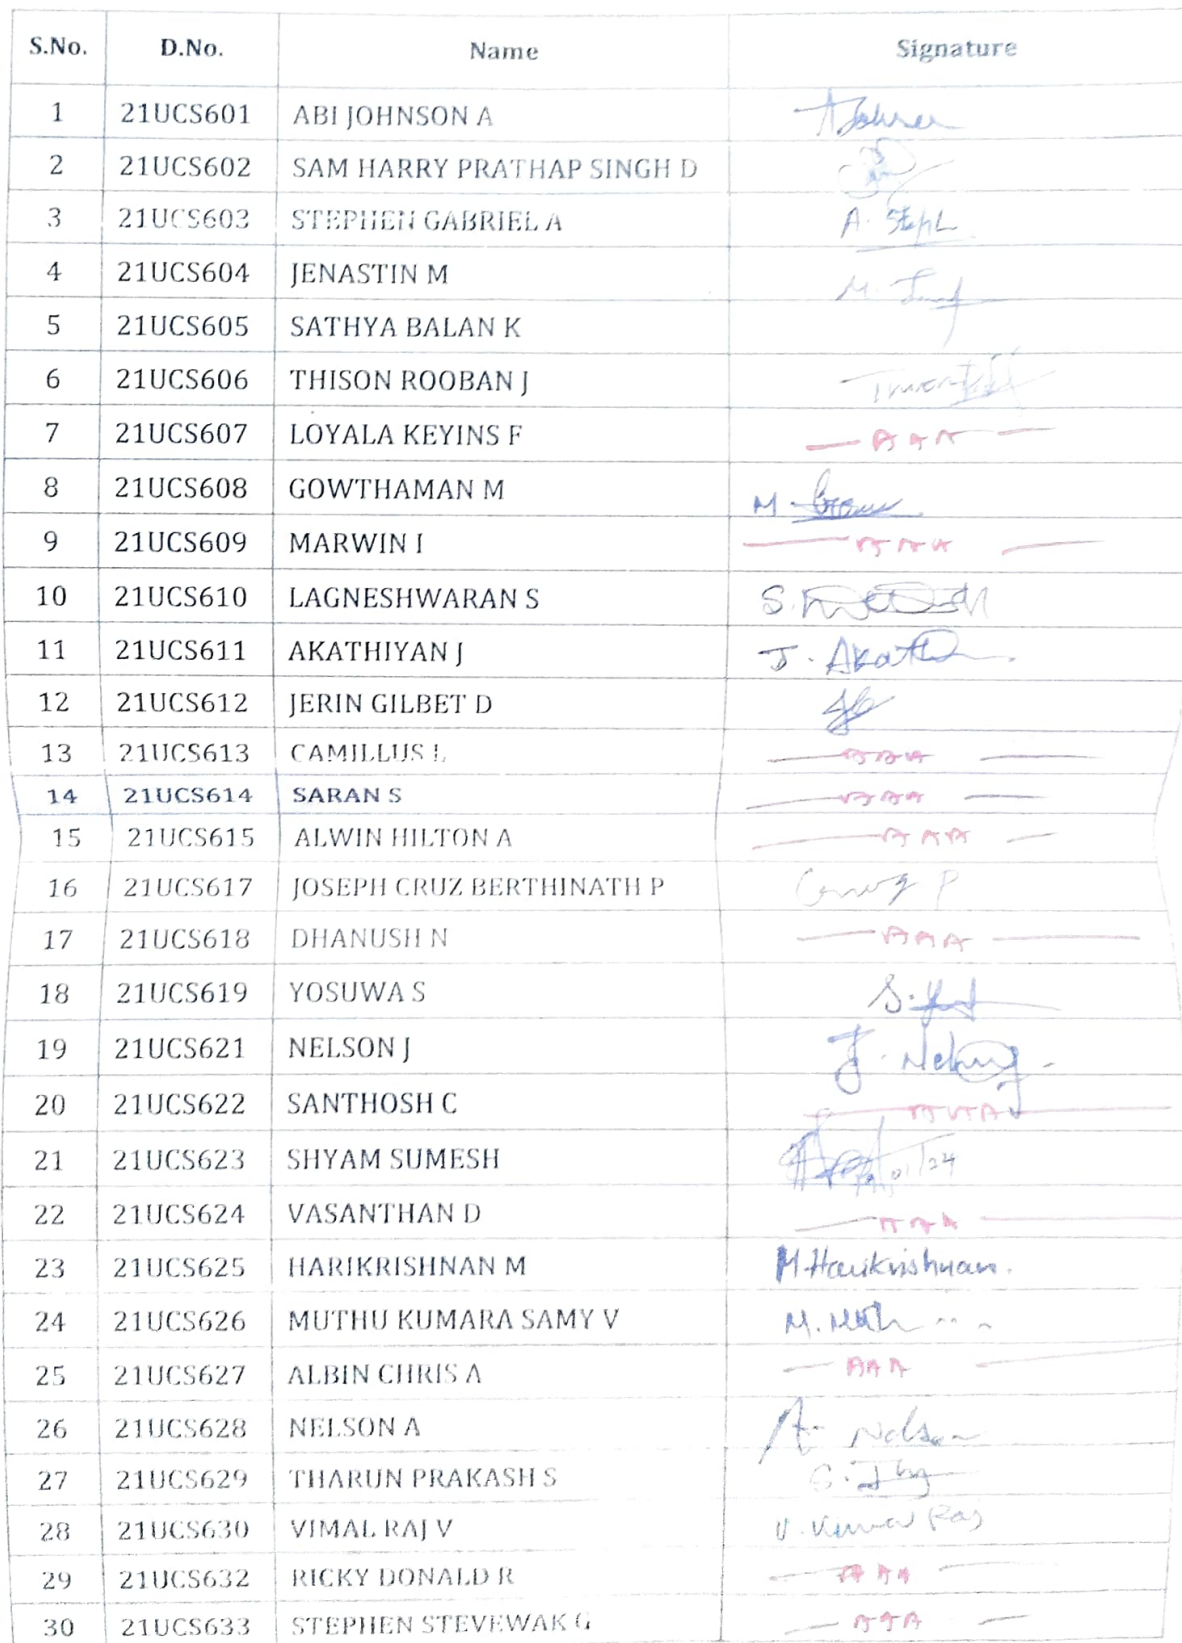 S.No. D.No. Name Signature
1 21UCS601 ABI JOHNSON A
2 21UCS602 SAM HARRY PRATHAP SINGH D
3 21UCS603 STEPHEN GABRIEL A A. Steph
4 21UCS604 JENASTIN M
5 21UCS605 SATHYA BALAN K
6 21UCS606 THISON ROOBAN J
7 21UCS607 LOYALA KEYINS F — AAA —
8 21UCS608 GOWTHAMAN M
9 21UCS609 MARWIN I — AAA —
10 21UCS610 LAGNESHWARAN S
11 21UCS611 AKATHIYAN J
12 21UCS612 JERIN GILBET D
13 21UCS613 CAMILLUS L — AAA —
14 21UCS614 SARAN S — AAA —
15 21UCS615 ALWIN HILTON A — AAA —
16 21UCS617 JOSEPH CRUZ BERTHINATH P
17 21UCS618 DHANUSH N — AAA —
18 21UCS619 YOSUWA S
19 21UCS621 NELSON J
20 21UCS622 SANTHOSH C — AAA —
21 21UCS623 SHYAM SUMESH
22 21UCS624 VASANTHAN D — AAA —
23 21UCS625 HARIKRISHNAN M M.Harikrishnan.
24 21UCS626 MUTHU KUMARA SAMY V
25 21UCS627 ALBIN CHRIS A — AAA —
26 21UCS628 NELSON A A. Nelson
27 21UCS629 THARUN PRAKASH S
28 21UCS630 VIMAL RAJ V
29 21UCS632 RICKY DONALD R — AAA —
30 21UCS633 STEPHEN STEVEWAK G — AAA —